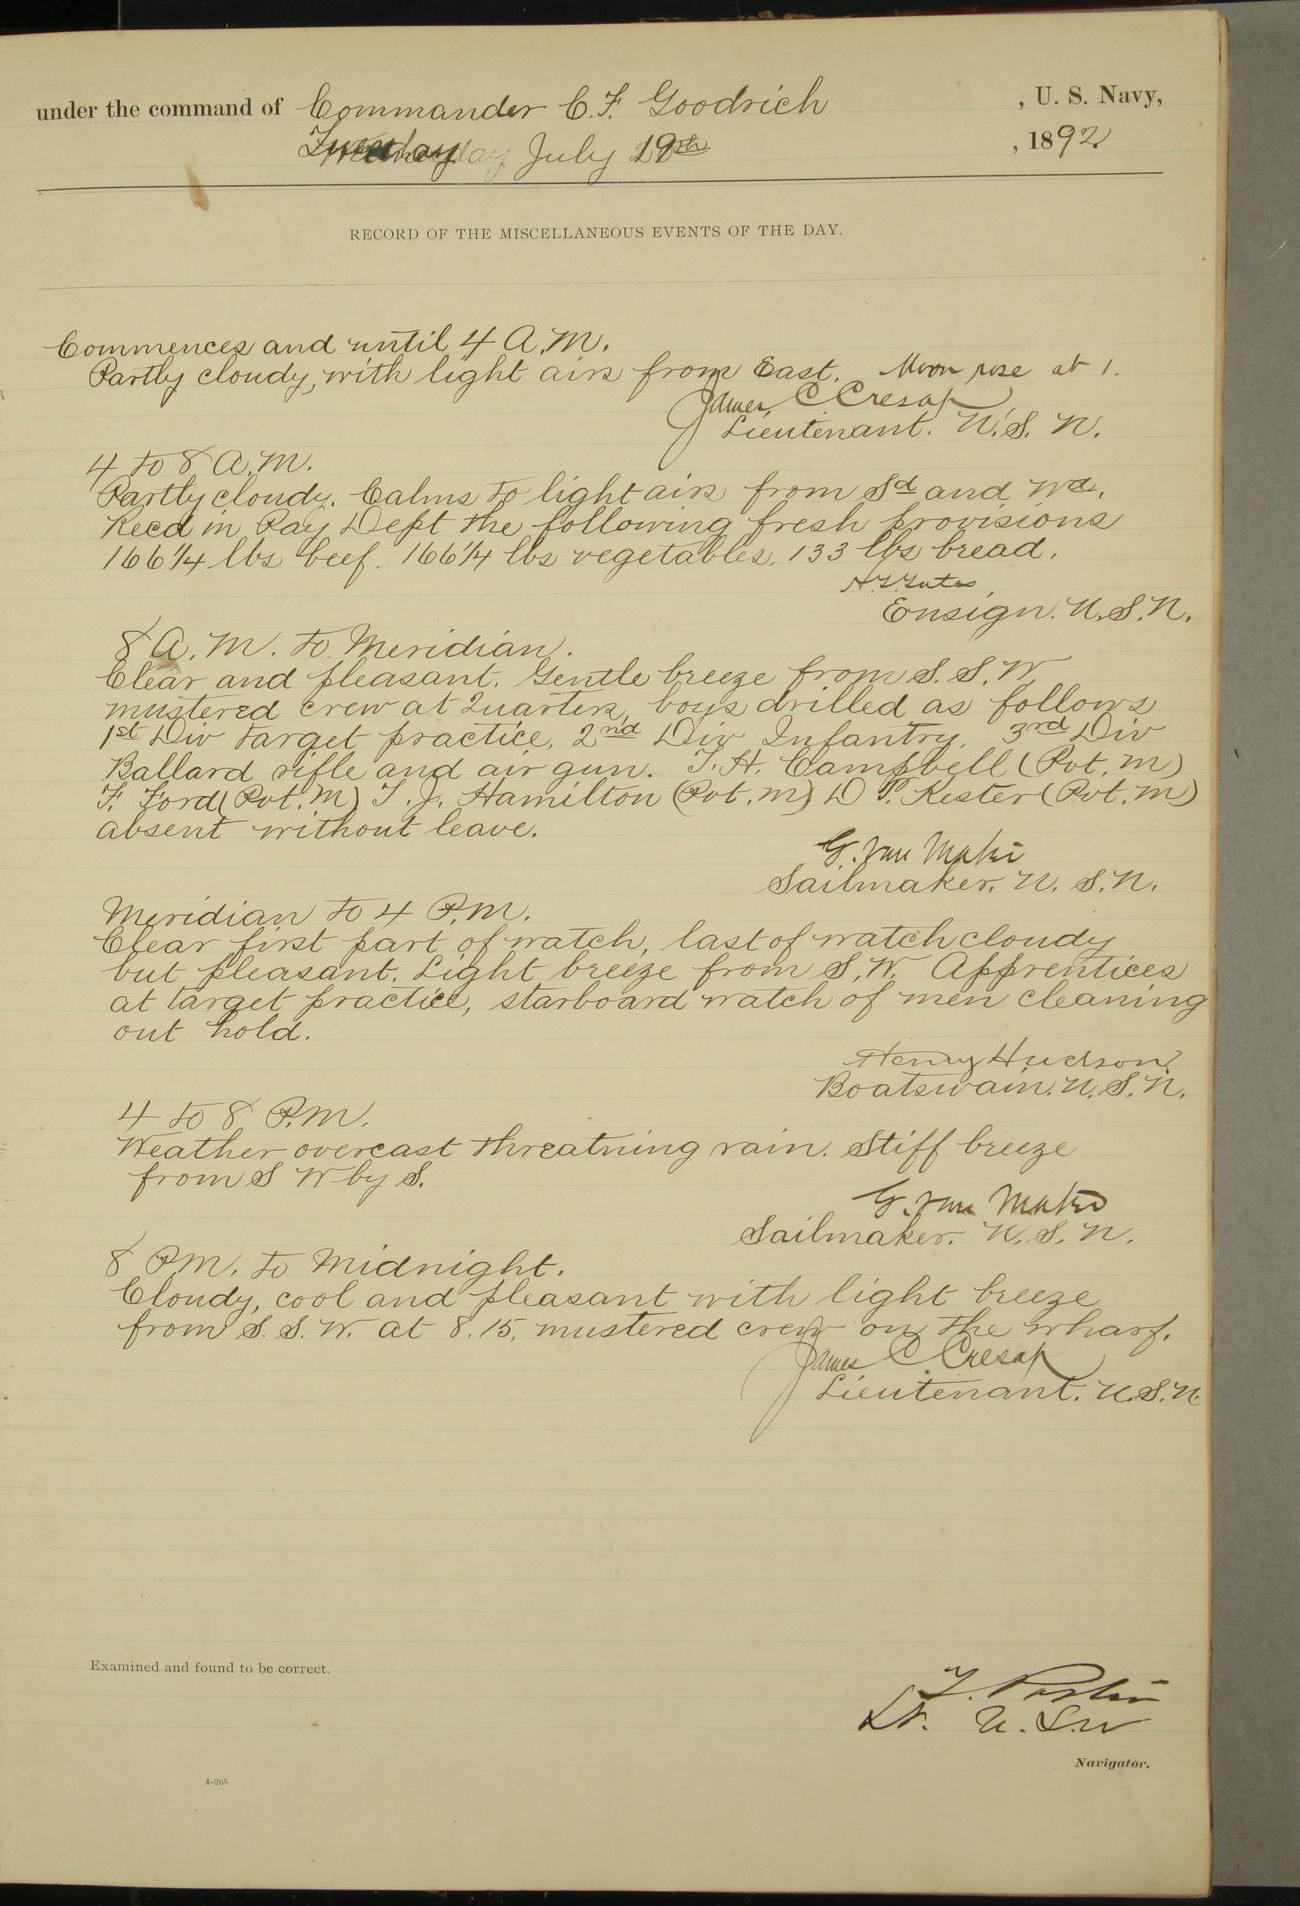 under the command of Commander C. F. Goodrich , U. S. Navy,
Tuesday July 19th , 1892
RECORD OF THE MISCELLANEOUS EVENTS OF THE DAY.
Commences and until 4 A.M.
Partly cloudy, with light airs from East. Moon rose at 1.
James C Cresap
Lieutenant. U.S. N.
4 to 8 A.M.
Partly cloudy. Calms to light airs from Sd and Wd.
Recd in Pay Dept the following fresh provisions
166 1/4 lbs beef. 166 1/4 lbs vegetables, 133 lbs bread.
Ensign. U.S.N.
8 A.M. to Meridian.
Clear and pleasant. Gentle breeze from S.S.W.
mustered crew at Quarters, boys drilled as follows
1st Div target practice, 2nd Div Infantry. 3rd Div
Ballard rifle and air gun. T. H. Campbell (Pvt. M)
F. Ford (Pvt. M) T. J. Hamilton (Pvt. M) D P. Kester (Pvt. M)
absent without leave.
G. Van Mater
Sailmaker. U. S.N.
Meridian to 4 P.M.
Clear first part of watch, last of watch cloudy
but pleasant. Light breeze from S.W. Apprentices
at target practice, starboard watch of men cleaning
out hold.
Henry Hudson
Boatswain. U.S.N.
4 to 8 P.M.
Weather overcast threatning rain. Stiff breeze
from S W by S.
G. Van Mater
Sailmaker. U.S. N.
8 P.M. to Midnight.
Cloudy, cool and pleasant with light breeze
from S. S. W. at 8.15, mustered crew on the wharf.
James C. Cresap
Lieutenant. U.S.N.
Examined and found to be correct.
Lt. U.S.N
Navigator.
4-265